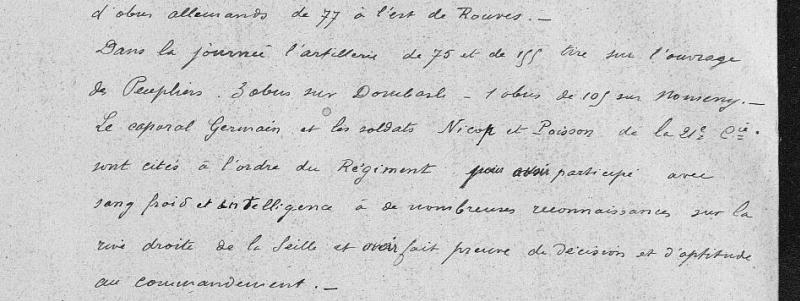 d'obus allemands de 77 à l'est de Rouves. —
Dans la journée l'artillerie de 75 et de 155 tire sur l'ouvrage
des Peupliers. 3 obus sur Dombasle – 1 obus de 105 sur Nomeny. —
Le caporal Germain et les soldats Nicop et Poisson de la 21e Cie.
sont cités à l'ordre du Régiment pour avoir participé avec
sang froid et intelligence à de nombreuses reconnaissances sur la
rive droite de la Seille et avoir fait preuve de décision et d'aptitude
au commandement. —